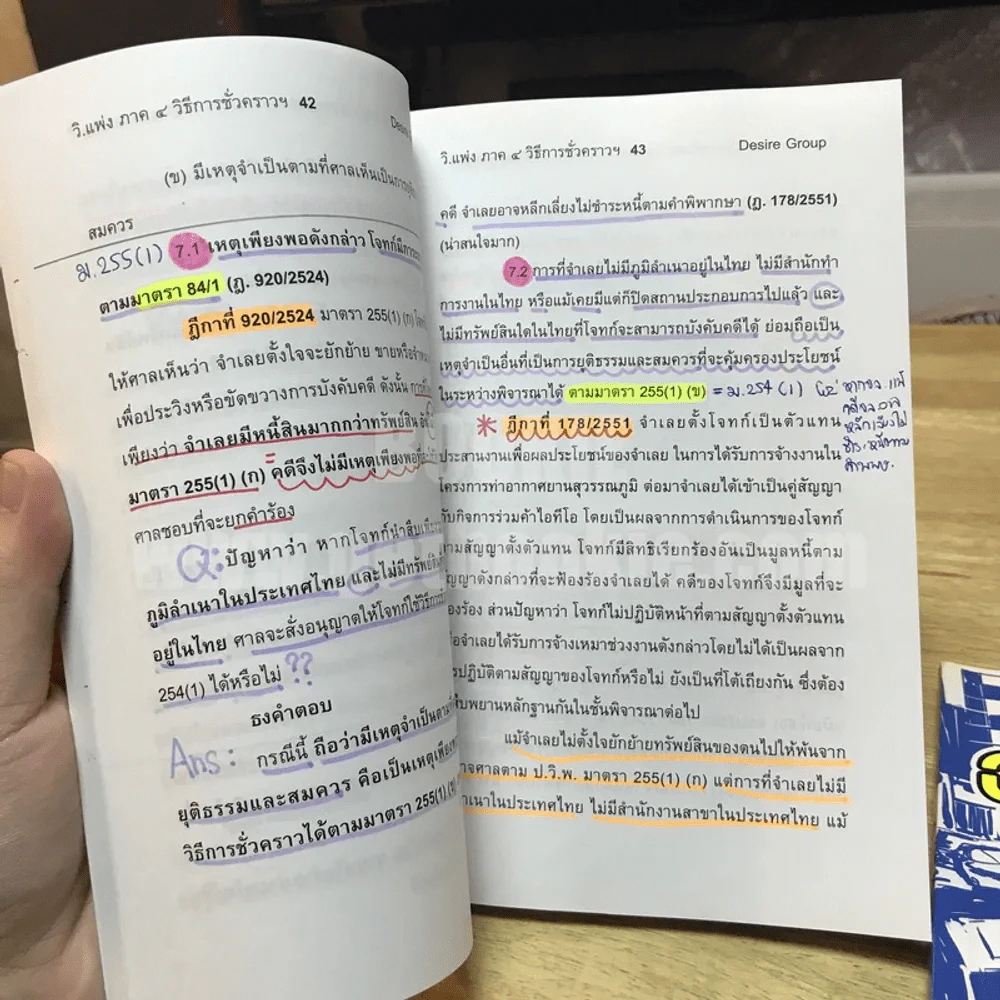 วิ.แพ่ง ภาค ๔ วิธีการชั่วคราวฯ 42
(ข) มีเหตุจำเป็นตามที่ศาลเห็นเป็นการ
สมควร
ม.255(1) 7.1 เหตุเพียงพอดังกล่าว โจทก์มีภาระ
ตามมาตรา 84/1 (ฎ. 920/2524)
ฎีกาที่ 920/2524 มาตรา 255(1) (ก)
ให้ศาลเห็นว่า จำเลยตั้งใจจะยักย้าย ขายหรือจำหน่าย
เพื่อประวิงหรือขัดขวางการบังคับคดี ดังนั้น
เพียงว่า จำเลยมีหนี้สินมากกว่าทรัพย์สิน
มาตรา 255(1) (ก) คดีจึงไม่มีเหตุเพียงพอที่
ศาลชอบที่จะยกคำร้อง
Q: ปัญหาว่า หากโจทก์นำสืบ
ภูมิลำเนาในประเทศไทย และไม่มีทรัพย์สิน
อยู่ในไทย ศาลจะสั่งอนุญาตให้โจทก์ใช้วิธีการ
254(1) ได้หรือไม่ ??
ธงคำตอบ
Ans: กรณีนี้ ถือว่ามีเหตุจำเป็นตาม
ยุติธรรมและสมควร คือเป็นเหตุเพียง
วิธีการชั่วคราวได้ตามมาตรา 255(1)
วิ.แพ่ง ภาค ๔ วิธีการชั่วคราวฯ 43 Desire Group
คดี จำเลยอาจหลีกเลี่ยงไม่ชำระหนี้ตามคำพิพากษา (ฎ. 178/2551)
(น่าสนใจมาก)
7.2 การที่จำเลยไม่มีภูมิลำเนาอยู่ในไทย ไม่มีสำนักทำ
การงานในไทย หรือแม้เคยมีแต่ก็ปิดสถานประกอบการไปแล้ว และ
ไม่มีทรัพย์สินใดในไทยที่โจทก์จะสามารถบังคับคดีได้ ย่อมถือเป็น
เหตุจำเป็นอื่นที่เป็นการยุติธรรมและสมควรที่จะคุ้มครองประโยชน์
ในระหว่างพิจารณาได้ ตามมาตรา 255(1) (ข) = ม.254 (1)
* ฎีกาที่ 178/2551 จำเลยตั้งโจทก์เป็นตัวแทน
ประสานงานเพื่อผลประโยชน์ของจำเลย ในการได้รับการจ้างงานใน
โครงการท่าอากาศยานสุวรรณภูมิ ต่อมาจำเลยได้เข้าเป็นคู่สัญญา
กับกิจการร่วมค้าไอทีโอ โดยเป็นผลจากการดำเนินการของโจทก์
ตามสัญญาตั้งตัวแทน โจทก์มีสิทธิเรียกร้องอันเป็นมูลหนี้ตาม
สัญญาดังกล่าวที่จะฟ้องร้องจำเลยได้ คดีของโจทก์จึงมีมูลที่จะ
ฟ้องร้อง ส่วนปัญหาว่า โจทก์ไม่ปฏิบัติหน้าที่ตามสัญญาตั้งตัวแทน
หรือจำเลยได้รับการจ้างเหมาช่วงงานดังกล่าวโดยไม่ได้เป็นผลจาก
การปฏิบัติตามสัญญาของโจทก์หรือไม่ ยังเป็นที่โต้เถียงกัน ซึ่งต้อง
สืบพยานหลักฐานกันในชั้นพิจารณาต่อไป
แม้จำเลยไม่ตั้งใจยักย้ายทรัพย์สินของตนไปให้พ้นจาก
อำนาจศาลตาม ป.วิ.พ. มาตรา 255(1) (ก) แต่การที่จำเลยไม่มี
ภูมิลำเนาในประเทศไทย ไม่มีสำนักงานสาขาในประเทศไทย แม้